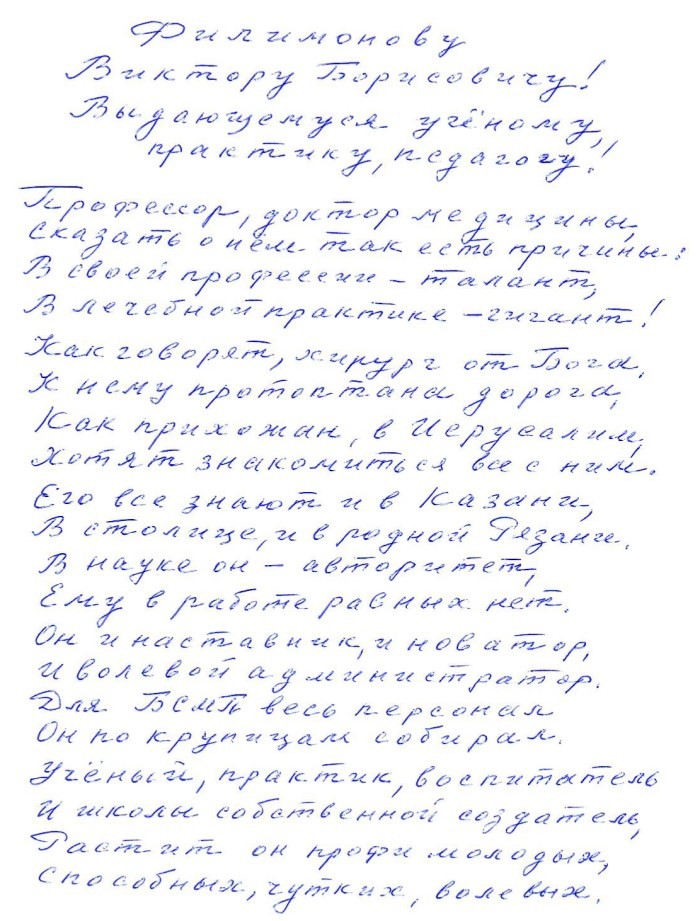 Филимонову
Виктору Борисовичу!
Выдающемуся учёному,
практику, педагогу!
Профессор, доктор медицины,
сказать о нём так есть причины:
В своей профессии – талант,
В лечебной практике – гигант!
Как говорят, хирург от Бога,
К нему протоптана дорога,
Как прихожан, в Иерусалим,
Хотят знакомиться все с ним.
Его все знают и в Казани,
В столице, и в родной Рязани.
В науке он – авторитет,
Ему в работе равных нет.
Он и наставник, и новатор,
И волевой администратор.
Для БСМП весь персонал
Он по крупицам собирал.
Учёный, практик, воспитатель
И школы собственной создатель,
Растит он профи молодых,
Способных, чутких, волевых.